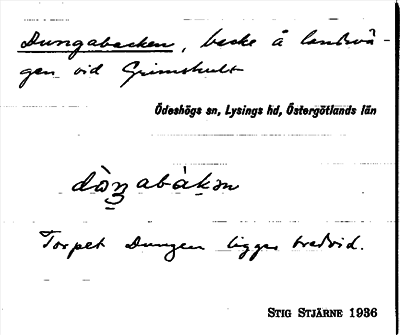 Dungabacken, backe å landsvä-
gen vid Grimshult
Ödeshögs sn, Lysings hd, Östergötlands län
dàŋabàkən
Torpet Dungen ligger bredvid.
STIG STJÄRNE 1936